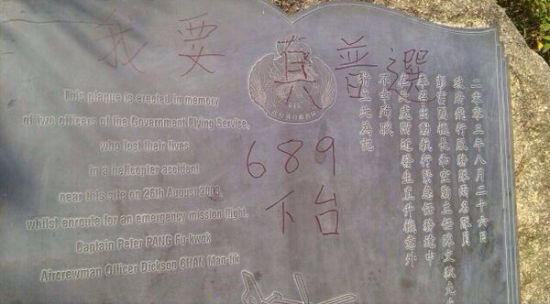 我要真普選
689
下台
This plaque is erected in memory
of two officers of the Government Flying Service,
who lost their lives
in a helicopter accident
near this site on 26th August 2003,
whilst enroute for an emergency mission flight.
Captain Peter PANG Fu-kwok
Aircrewman Officer Dickson CHAN Man-tik
二零零三年八月二十六日
政府飛行服務隊兩名隊員
彭富國機長和空勤主任陳文狄先生
奉召出動執行緊急任務途中
在此處附近發生直升機意外
不幸殉職
特立此為記